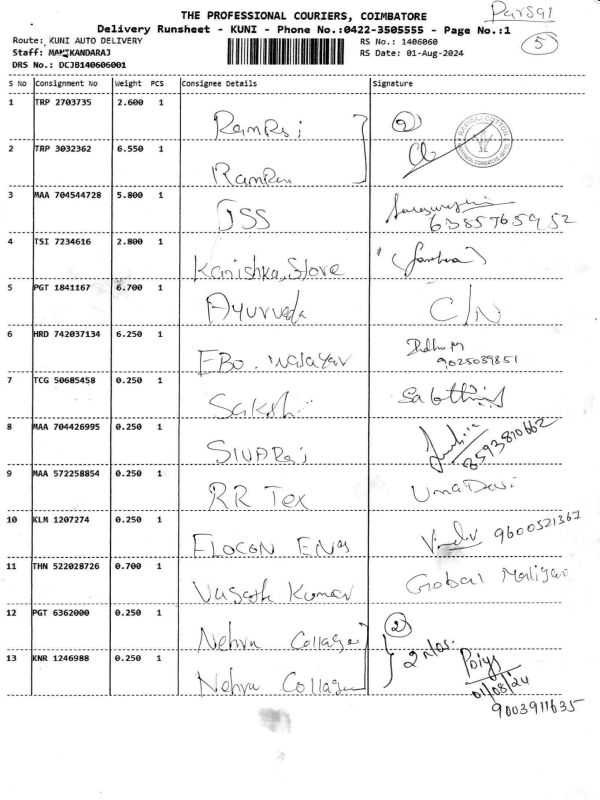 THE PROFESSIONAL COURIERS, COIMBATORE
Parsal
Delivery Runsheet - KUNI - Phone No.:0422-3505555 - Page No.:1
Route: KUNI AUTO DELIVERY RS No.: 1406060 5
Staff: MANIKANDARAJ RS Date: 01-Aug-2024
DRS No.: DCJB140606001
S No Consignment No Weight PCS Consignee Details Signature
1 TRP 2703735 2.600 1 RamRaj 2
2 TRP 3032362 6.550 1 RamRaj
RAMRAJ COTTON
3 MAA 704544728 5.800 1 JSS 6385765952
4 TSI 7234616 2.800 1 Kanishka, Store
5 PGT 1841167 6.700 1 Ayurveda C/N
6 HRD 742037134 6.250 1 EBO. 9025039851
7 TCG 50685458 0.250 1 Sakshi
8 MAA 704426995 0.250 1 SIVARaj 8593870662
9 MAA 572258854 0.250 1 RR Tex Uma Devi
10 KLM 1207274 0.250 1 9600521367
11 THN 522028726 0.700 1 Vasath Kumar
12 PGT 6362000 0.250 1 Nehru Collage 2
2 Nos.
13 KNR 1246988 0.250 1 Nehru Collage
01/08/24
9003911635